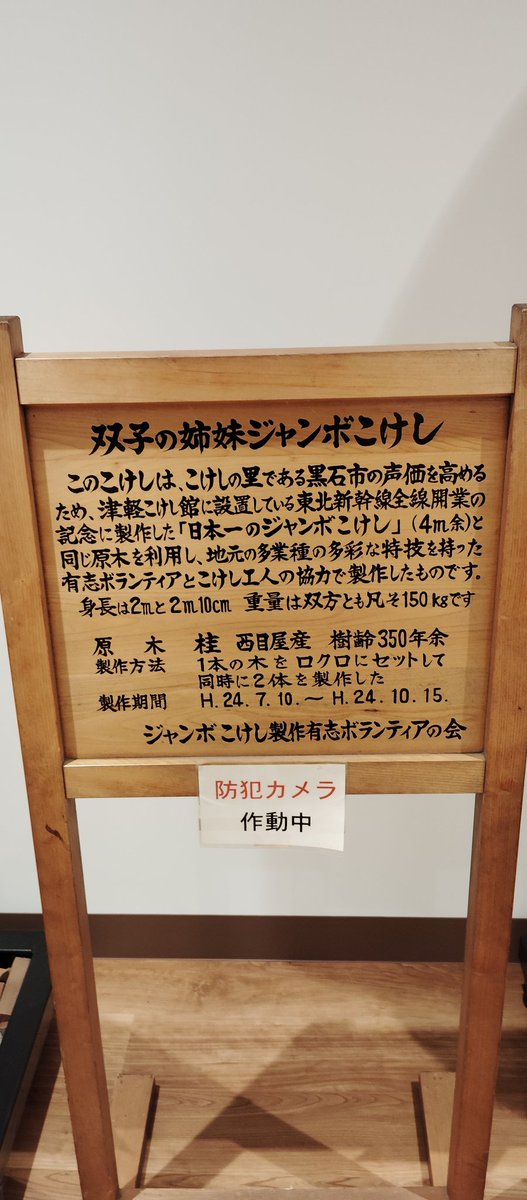 双子の姉妹ジャンボこけし
このこけしは、こけしの里である黒石市の声価を高める
ため、津軽こけし館に設置している東北新幹線全線開業の
記念に製作した「日本一のジャンボこけし」(4m余)と
同じ原木を利用し、地元の多業種の多彩な特技を持った
有志ボランティアとこけし工人の協力で製作したものです.
身長は2mと2m10cm 重量は双方とも凡そ150kgです
原木 桂 西目屋産 樹齢350年余
製作方法 1本の木をロクロにセットして
同時に2体を製作した
製作期間 H.24.7.10.〜H.24.10.15.
ジャンボこけし製作有志ボランティアの会
防犯カメラ
作動中